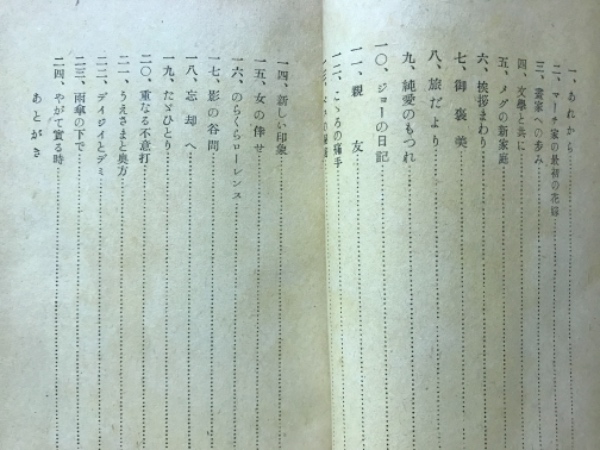 一、あれから
二、マーチ家の最初の花嫁
三、畫家への歩み
四、文學と共に
五、メグの新家庭
六、挨拶まわり
七、御褒美
八、旅だより
九、純愛のもつれ
一〇、ジョーの日記
一一、親友
一二、こゝろの痛手
一三、
一四、新しい印象
一五、女の倖せ
一六、のらくらローレンス
一七、影の谷間
一八、忘却へ
一九、たゞひとり
二〇、重なる不意打
二一、うえさまと奥方
二二、デイジイとデミ
二三、雨傘の下で
二四、やがて實る時
あとがき